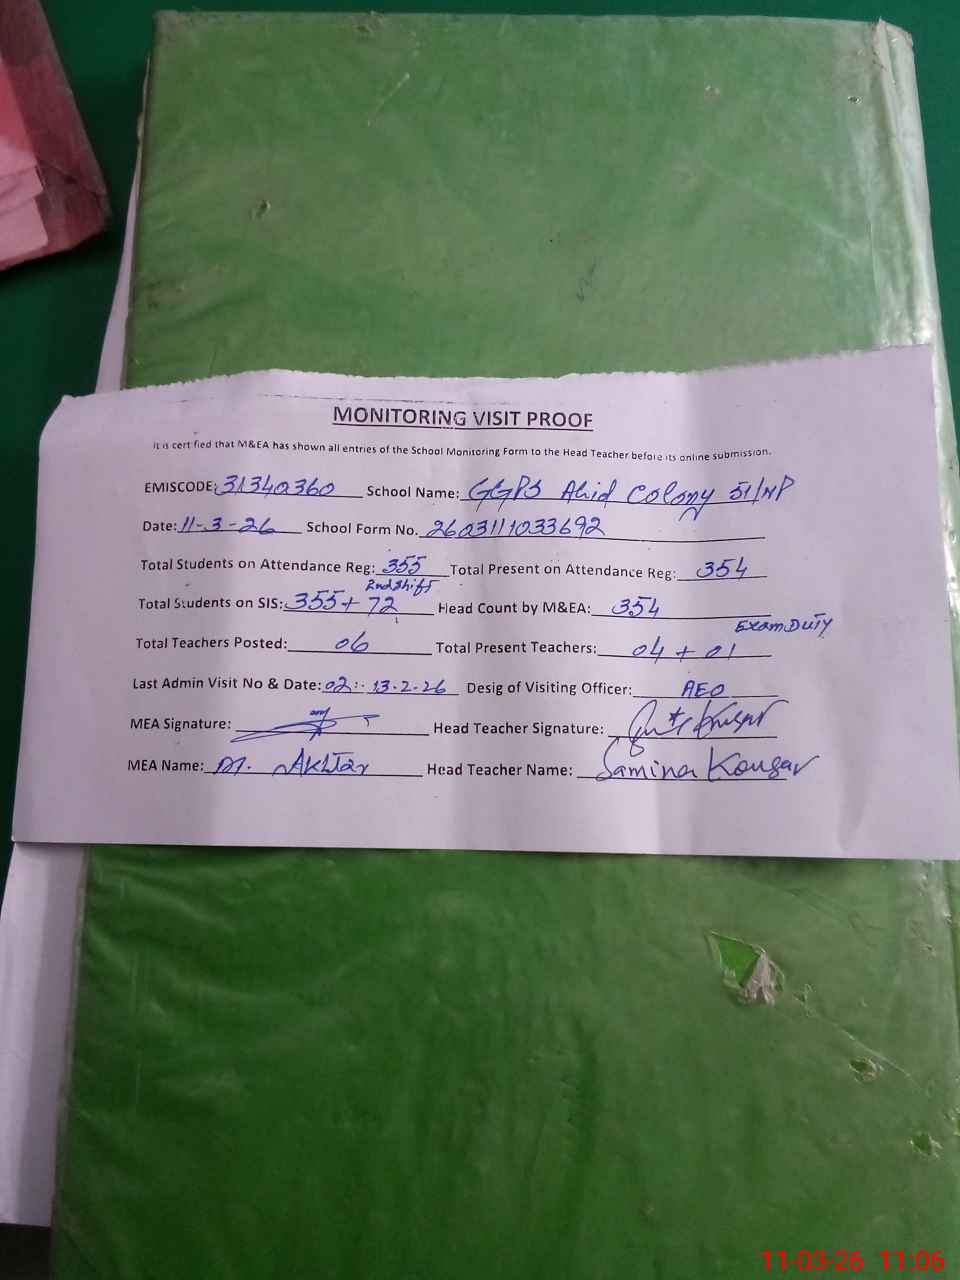 MONITORING VISIT PROOF
It is certified that M&EA has shown all entries of the School Monitoring Form to the Head Teacher before its online submission.
EMISCODE: 31340360 School Name: GGPS Abid Colony 51/NP
Date: 11-3-26 School Form No. 2603111033692
Total Students on Attendance Reg: 355 Total Present on Attendance Reg: 354
2nd Shift
Total Students on SIS: 355+ 72 Head Count by M&EA: 354
Exam Duty
Total Teachers Posted: 06 Total Present Teachers: 04 + 01
Last Admin Visit No & Date: 02:- 13-2-26 Desig of Visiting Officer: AEO
MEA Signature: Head Teacher Signature:
MEA Name: M. Akhtar Head Teacher Name: Samina Kousar
11-03-26 11:06